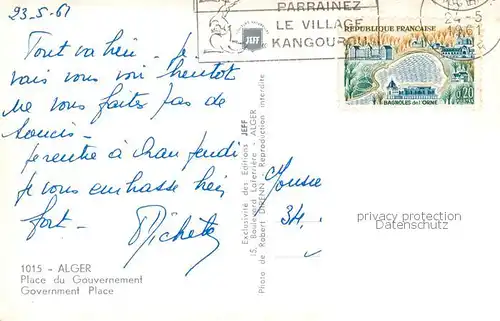 23-5-61
PARRAINEZ
LE VILLAGE
KANGOUROU
JEFF
24-5
1961
REPUBLIQUE FRANÇAISE
BAGNOLES de l'ORNE
0,20
POSTES
Tout va bien. Je
vais vous voir bientôt
Ne vous faites pas de
soucis.
je rentre à
je vous embrasse bien
fort.
34.
Exclusivité des Editions JEFF
15, Boulevard Laferrière - ALGER
Photo de Robert Reproduction interdite
1015 - ALGER
Place du Gouvernement
Government Place
privacy protection
Datenschutz